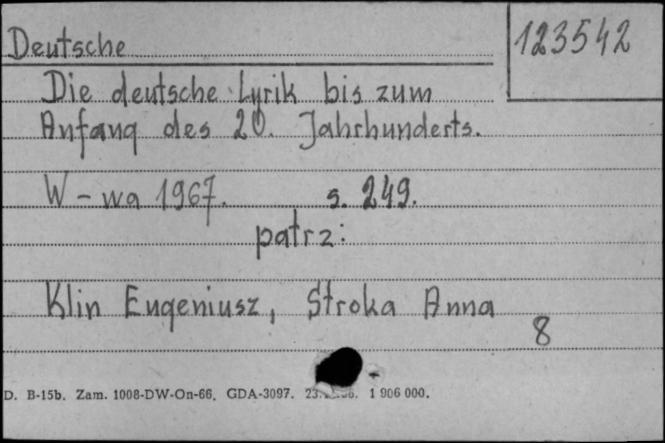 Deutsche
123542
Die deutsche Lyrik bis zum
Anfang des 20. Jahrhunderts.
W-wa 1967. s. 249.
patrz:
Klin Eugeniusz, Stroka Anna
8
D. B-15b. Zam. 1008-DW-On-66. GDA-3097. 1 906 000.